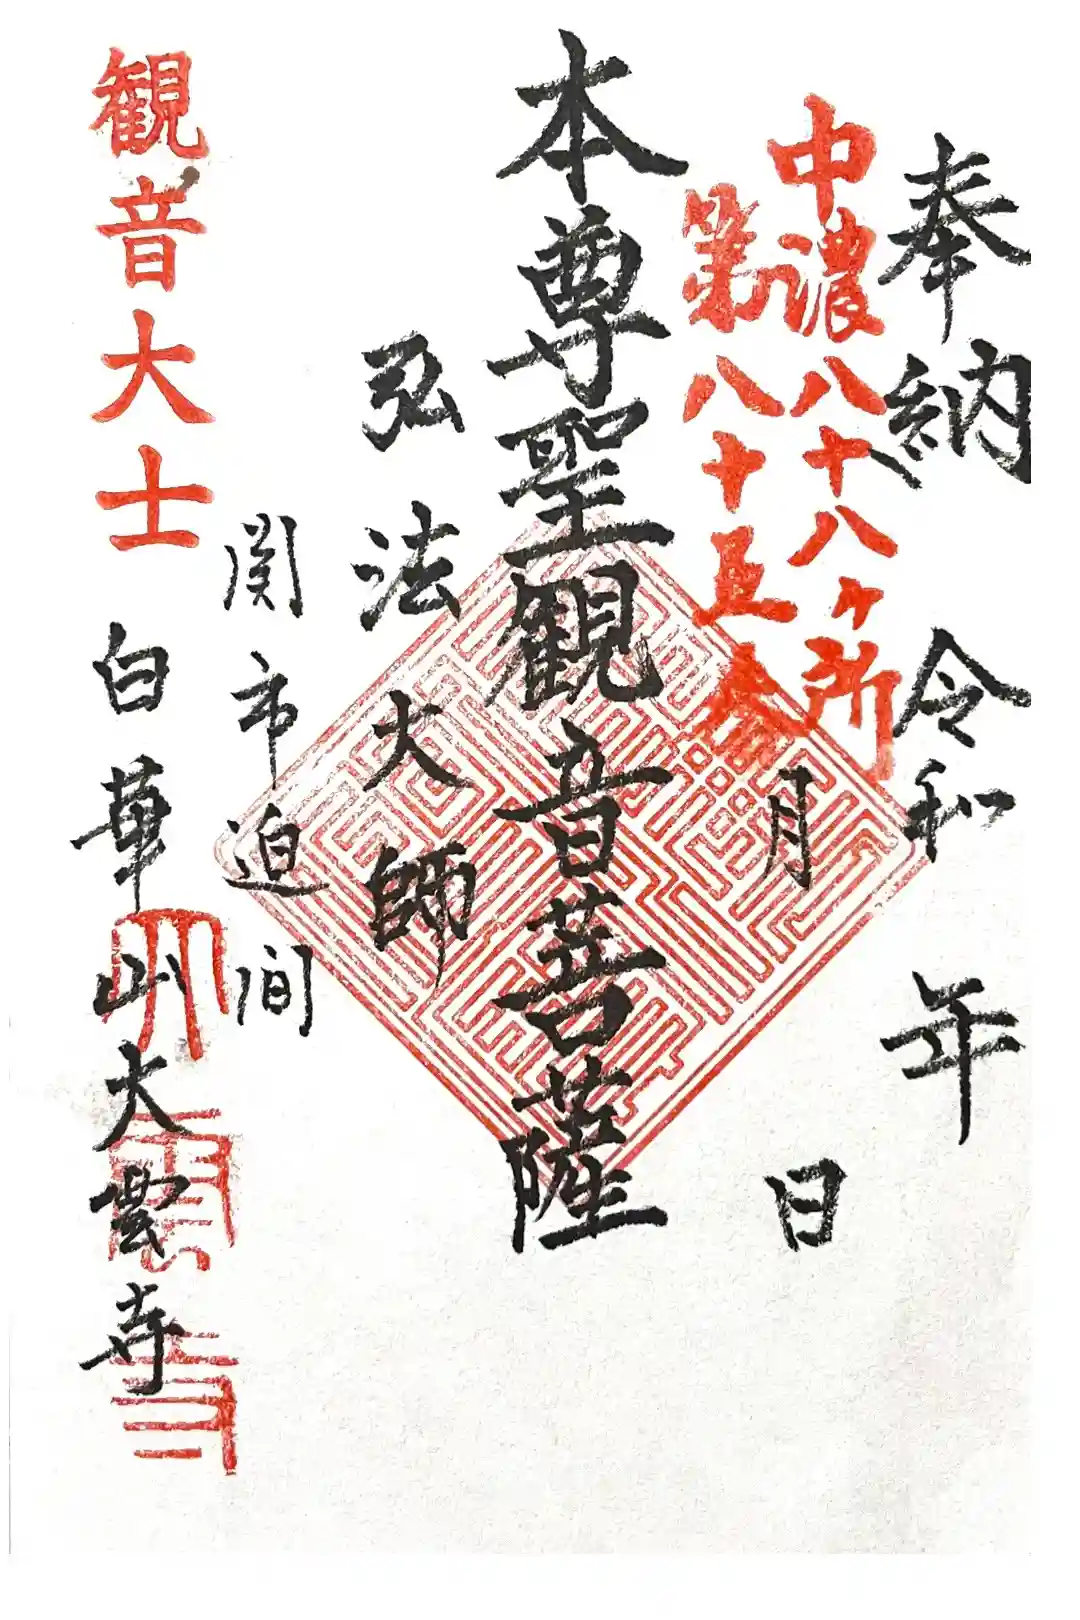 奉納
令和 年
月 日
中濃八十八ヶ所
第八十五番
本尊聖観音菩薩
弘法大師
関市迫間
観音大士
白華山大雲寺